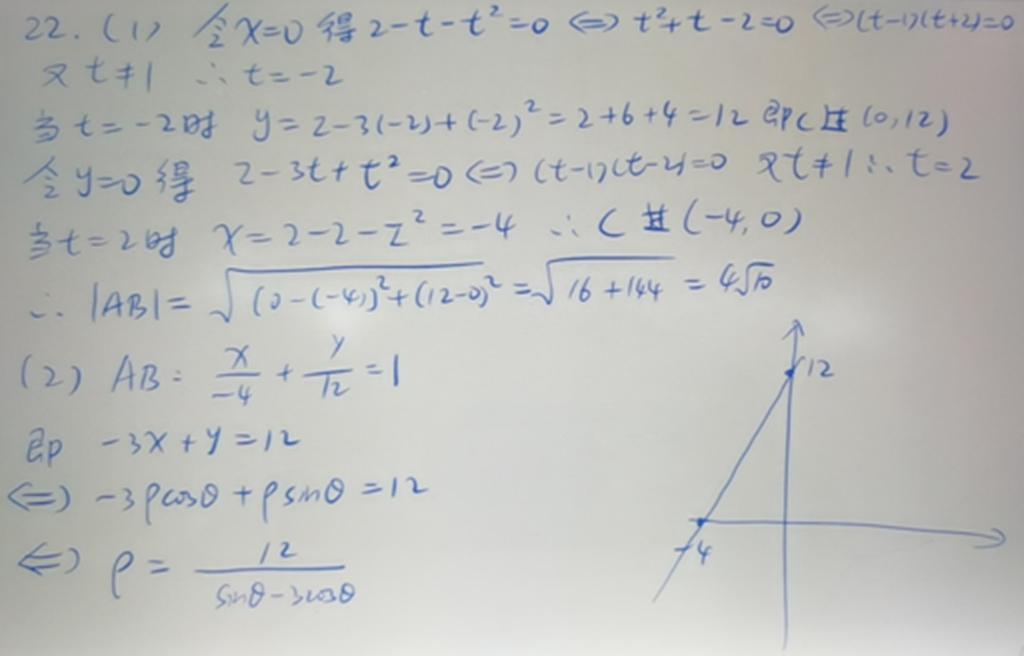 22. (1) 令x=0 得 2-t-t²=0 ⇔ t²+t-2=0 ⇔(t-1)(t+2)=0
又 t≠1 ∴ t=-2
当t=-2时 y=2-3(-2)+(-2)²=2+6+4=12 即C过(0,12)
令y=0得 2-3t+t²=0⇔(t-1)(t-2)=0 又t≠1∴t=2
当t=2时 x=2-2-2²=-4 ∴C过(-4,0)
∴ |AB|=√((0-(-4))²+(12-0)²)=√(16+144)=4√10
(2) AB: x/-4 + y/12 =1
即 -3x+y=12
⇔ -3ρcosθ+ρsinθ=12
⇔ ρ= 12/(sinθ-3cosθ)
12
-4